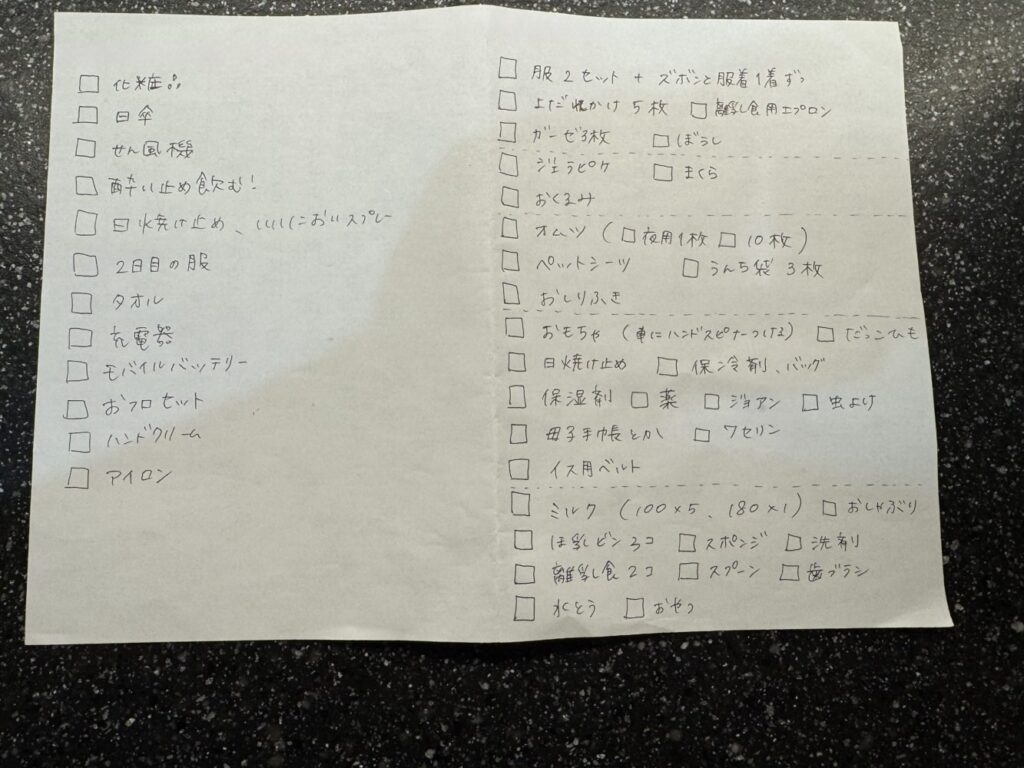 □ 化粧品
□ 日傘
□ せん風機
□ 酔い止め飲む!
□ 日焼け止め、いいにおいスプレー
□ 2日目の服
□ タオル
□ 充電器
□ モバイルバッテリー
□ おフロセット
□ ハンドクリーム
□ アイロン
□ 服2セット + ズボンと服着1着ずつ
□ よだれかけ 5枚 □ 離乳食用エプロン
□ ガーゼ3枚 □ ぼうし
□ ジェラピケ □ まくら
□ おくるみ
□ オムツ (□ 夜用1枚 □ 10枚)
□ ペットシーツ □ うんち袋 3枚
□ おしりふき
□ おもちゃ (車にハンドスピナーつける) □ だっこひも
□ 日焼け止め □ 保冷剤、バッグ
□ 保湿剤 □ 薬 □ ジョアン □ 虫よけ
□ 母子手帳とか □ ワセリン
□ イス用ベルト
□ ミルク (100×5、180×1) □ おしゃぶり
□ ほ乳ビン3コ □ スポンジ □ 洗剤
□ 離乳食2コ □ スプーン □ 歯ブラシ
□ 水とう □ おやつ